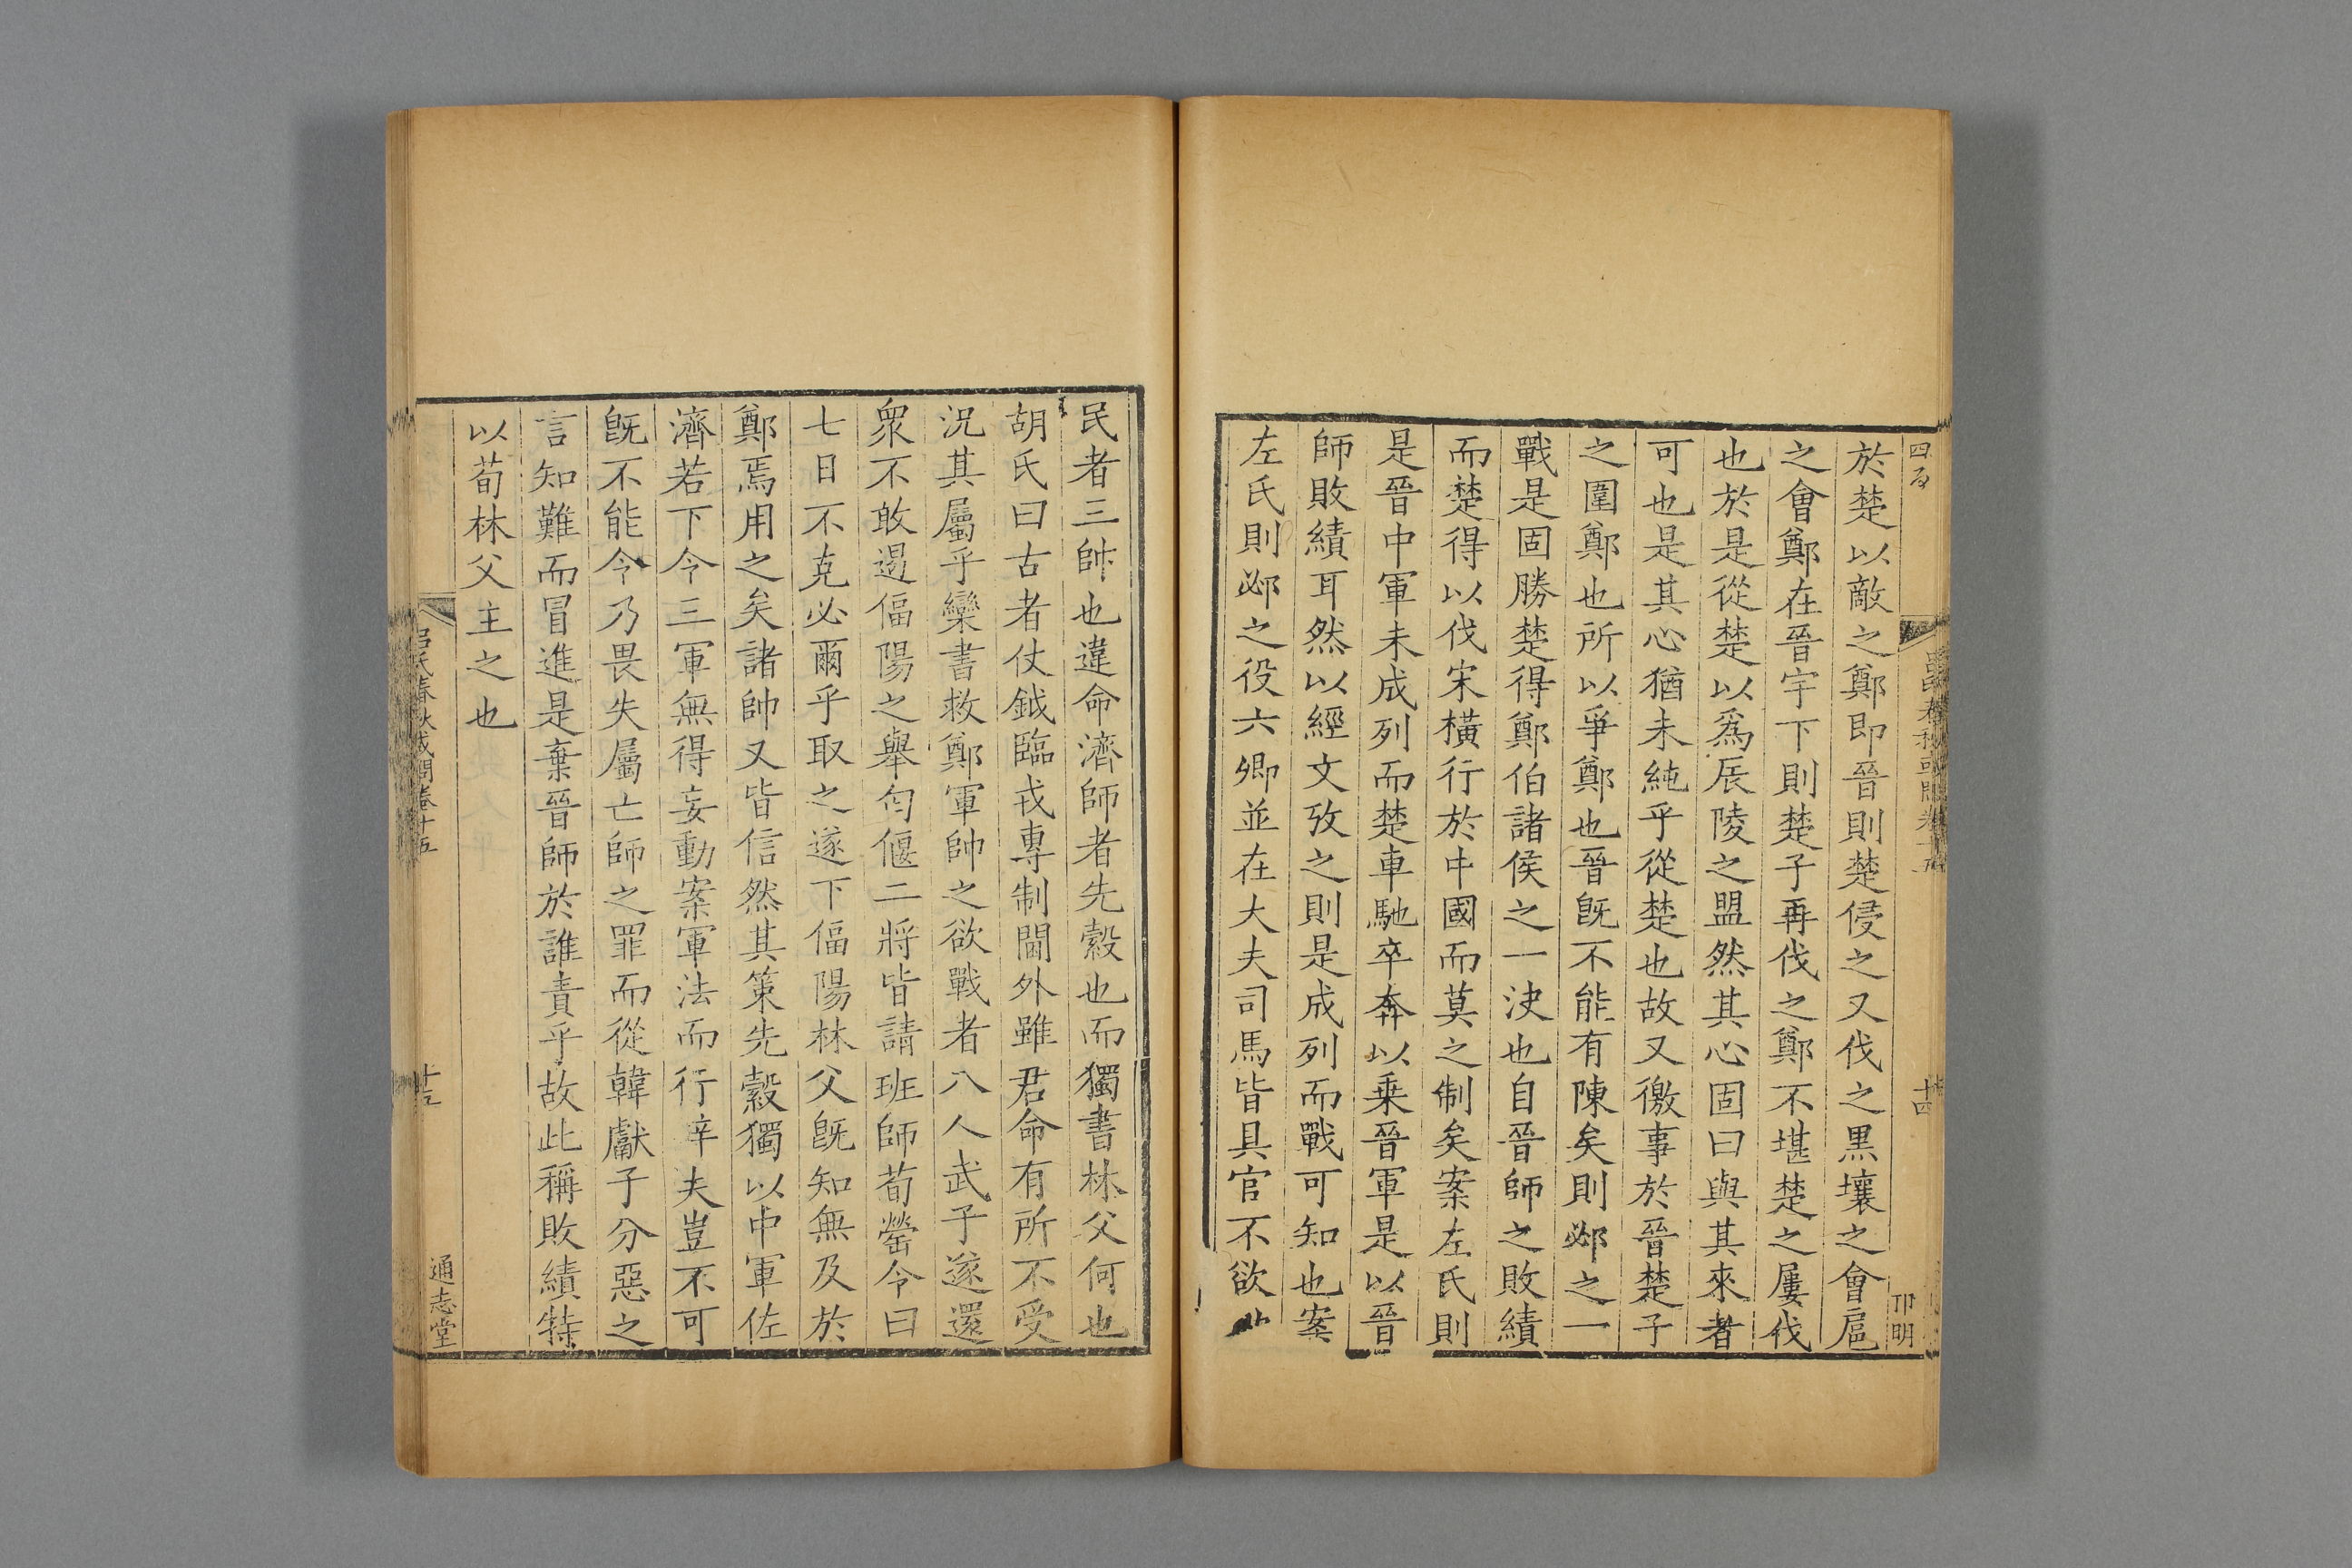 於楚以敵之鄭即晉則楚侵之又伐之黒壤之會扈
之會鄭在晉宇下則楚子再伐之鄭不堪楚之屢伐
也於是從楚以爲辰陵之盟然其心固曰與其來者
可也是其心猶未純乎從楚也故又徼事於晉楚子
之圍鄭也所以爭鄭也晉旣不能有陳矣則邲之一
戰是固勝楚得鄭伯諸侯之一决也自晉師之敗績
而楚得以伐宋橫行於中國而莫之制矣案左氏則
是晉中軍未成列而楚車馳卒奔以乗晉軍是以晉
師敗績耳然以經文攷之則是成列而戰可知也案
左氏則邲之役六卿並在大夫司馬皆具官不欲
民者三帥也違命濟師者先縠也而獨書林父何也
胡氏曰古者仗鉞臨戎專制閫外雖君命有所不受
況其屬乎欒書救鄭軍帥之欲戰者八人武子遂還
衆不敢遏偪陽之舉匄偃二將皆請班師荀罃令曰
七日不克必爾乎取之遂下偪陽林父旣知無及於
鄭焉用之矣諸帥又皆信然其策先縠獨以中軍佐
濟若下令三軍無得妄動案軍法而行辛夫豈不可
旣不能令乃畏失屬亡師之罪而從韓獻子分惡之
言知難而冒進是棄晉師於誰責乎故此稱敗績特
以荀林父主之也
呂氏春秋或問卷十五
十五
通志堂